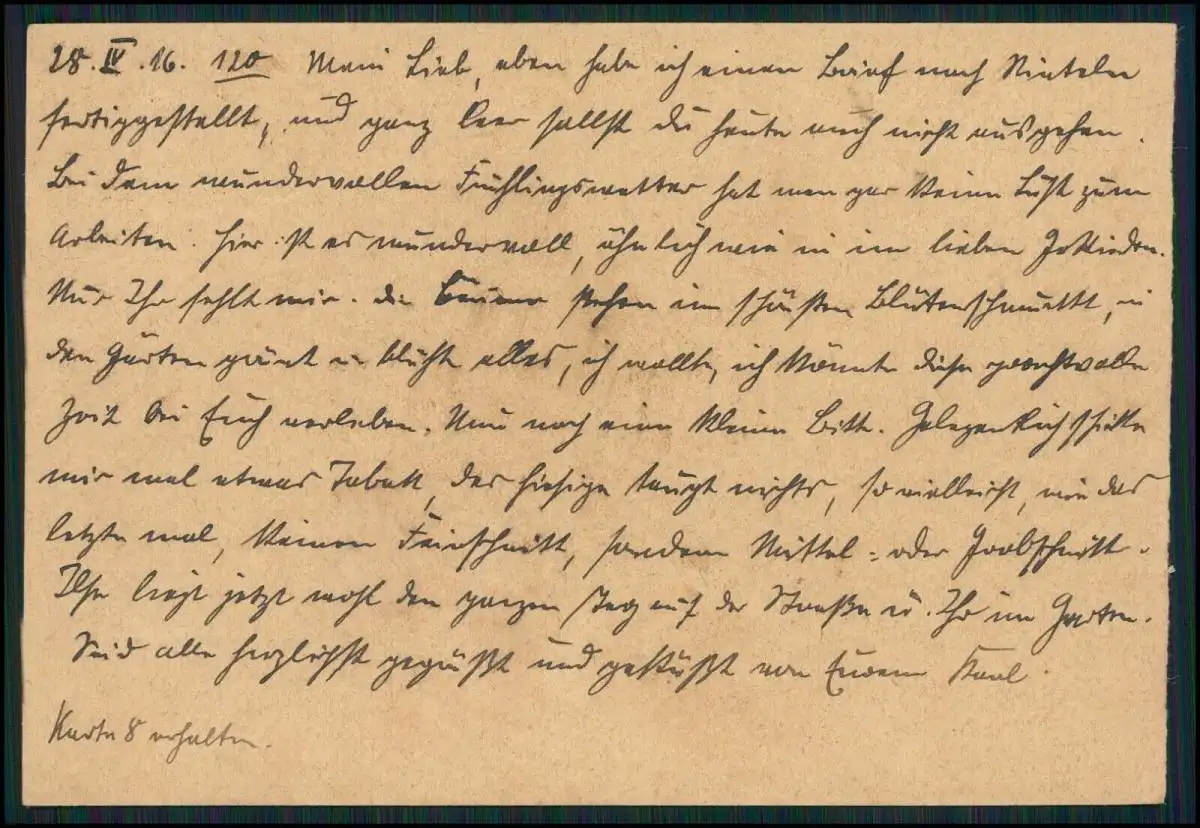 28.IV.16. 120 Mein Lieb, eben habe ich einen Brief nach Rinteln
fertiggestellt, und ganz leer sollst du heute auch nicht ausgehen.
Bei dem wundervollen Frühlingswetter hat man gar keine Lust zum
Arbeiten. Hier ist es wundervoll, ähnlich wie in im lieben
Nur Ihr fehlt mir. Die Bäume stehen im schönsten Blütenschmuckt, in
den Gärten grünt u blüht alles, ich wollte, ich könnte diese prachtvolle
Zeit bei Euch verleben. Nun noch eine kleine Bitte. Gelegentlich schicke
mir mal etwas Tabak, der hiesige taugt nichts, so vielleicht, wie das
letzte mal, keinen Feinschnitt, sondern Mittel- oder Grobschnitt.
Ilse liegt jetzt wohl den ganzen Tag auf der Straße u. Ihr im Garten.
Seid alle herzlichst gegrüßt und geküßt von Eurem Karl.
Karte 8 erhalten.